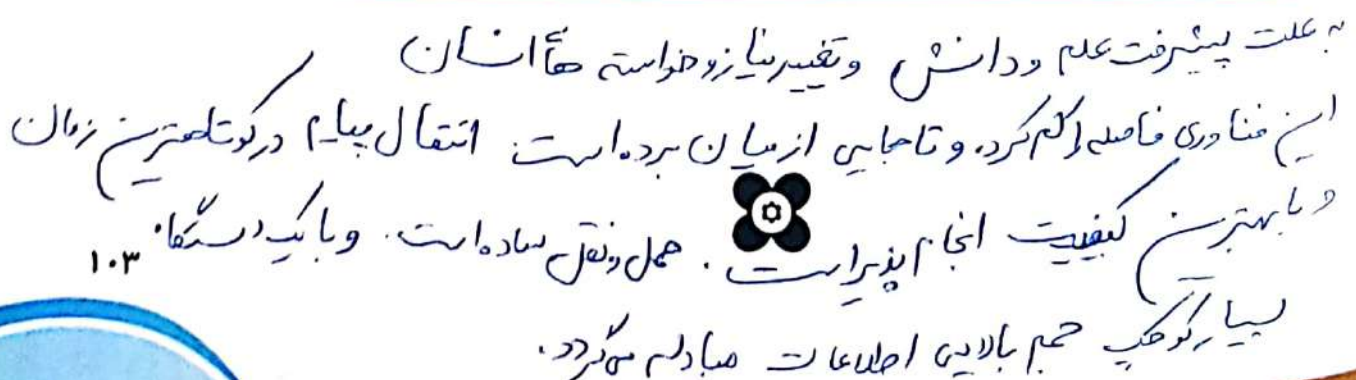 به علت پیشرفت علم و دانش و تغییر نیاز و خواسته های انسان
این فناوری فاصله را کم کرده و تا جایی از میان برده است انتقال پیام در کوتاهترین زمان
و با بهترین کیفیت انجام پذیر است. حمل و نقل ساده است. و با یک دستگاه
۱۰۳
بسیار کوچک حجم بالایی اطلاعات مبادله می گردد.